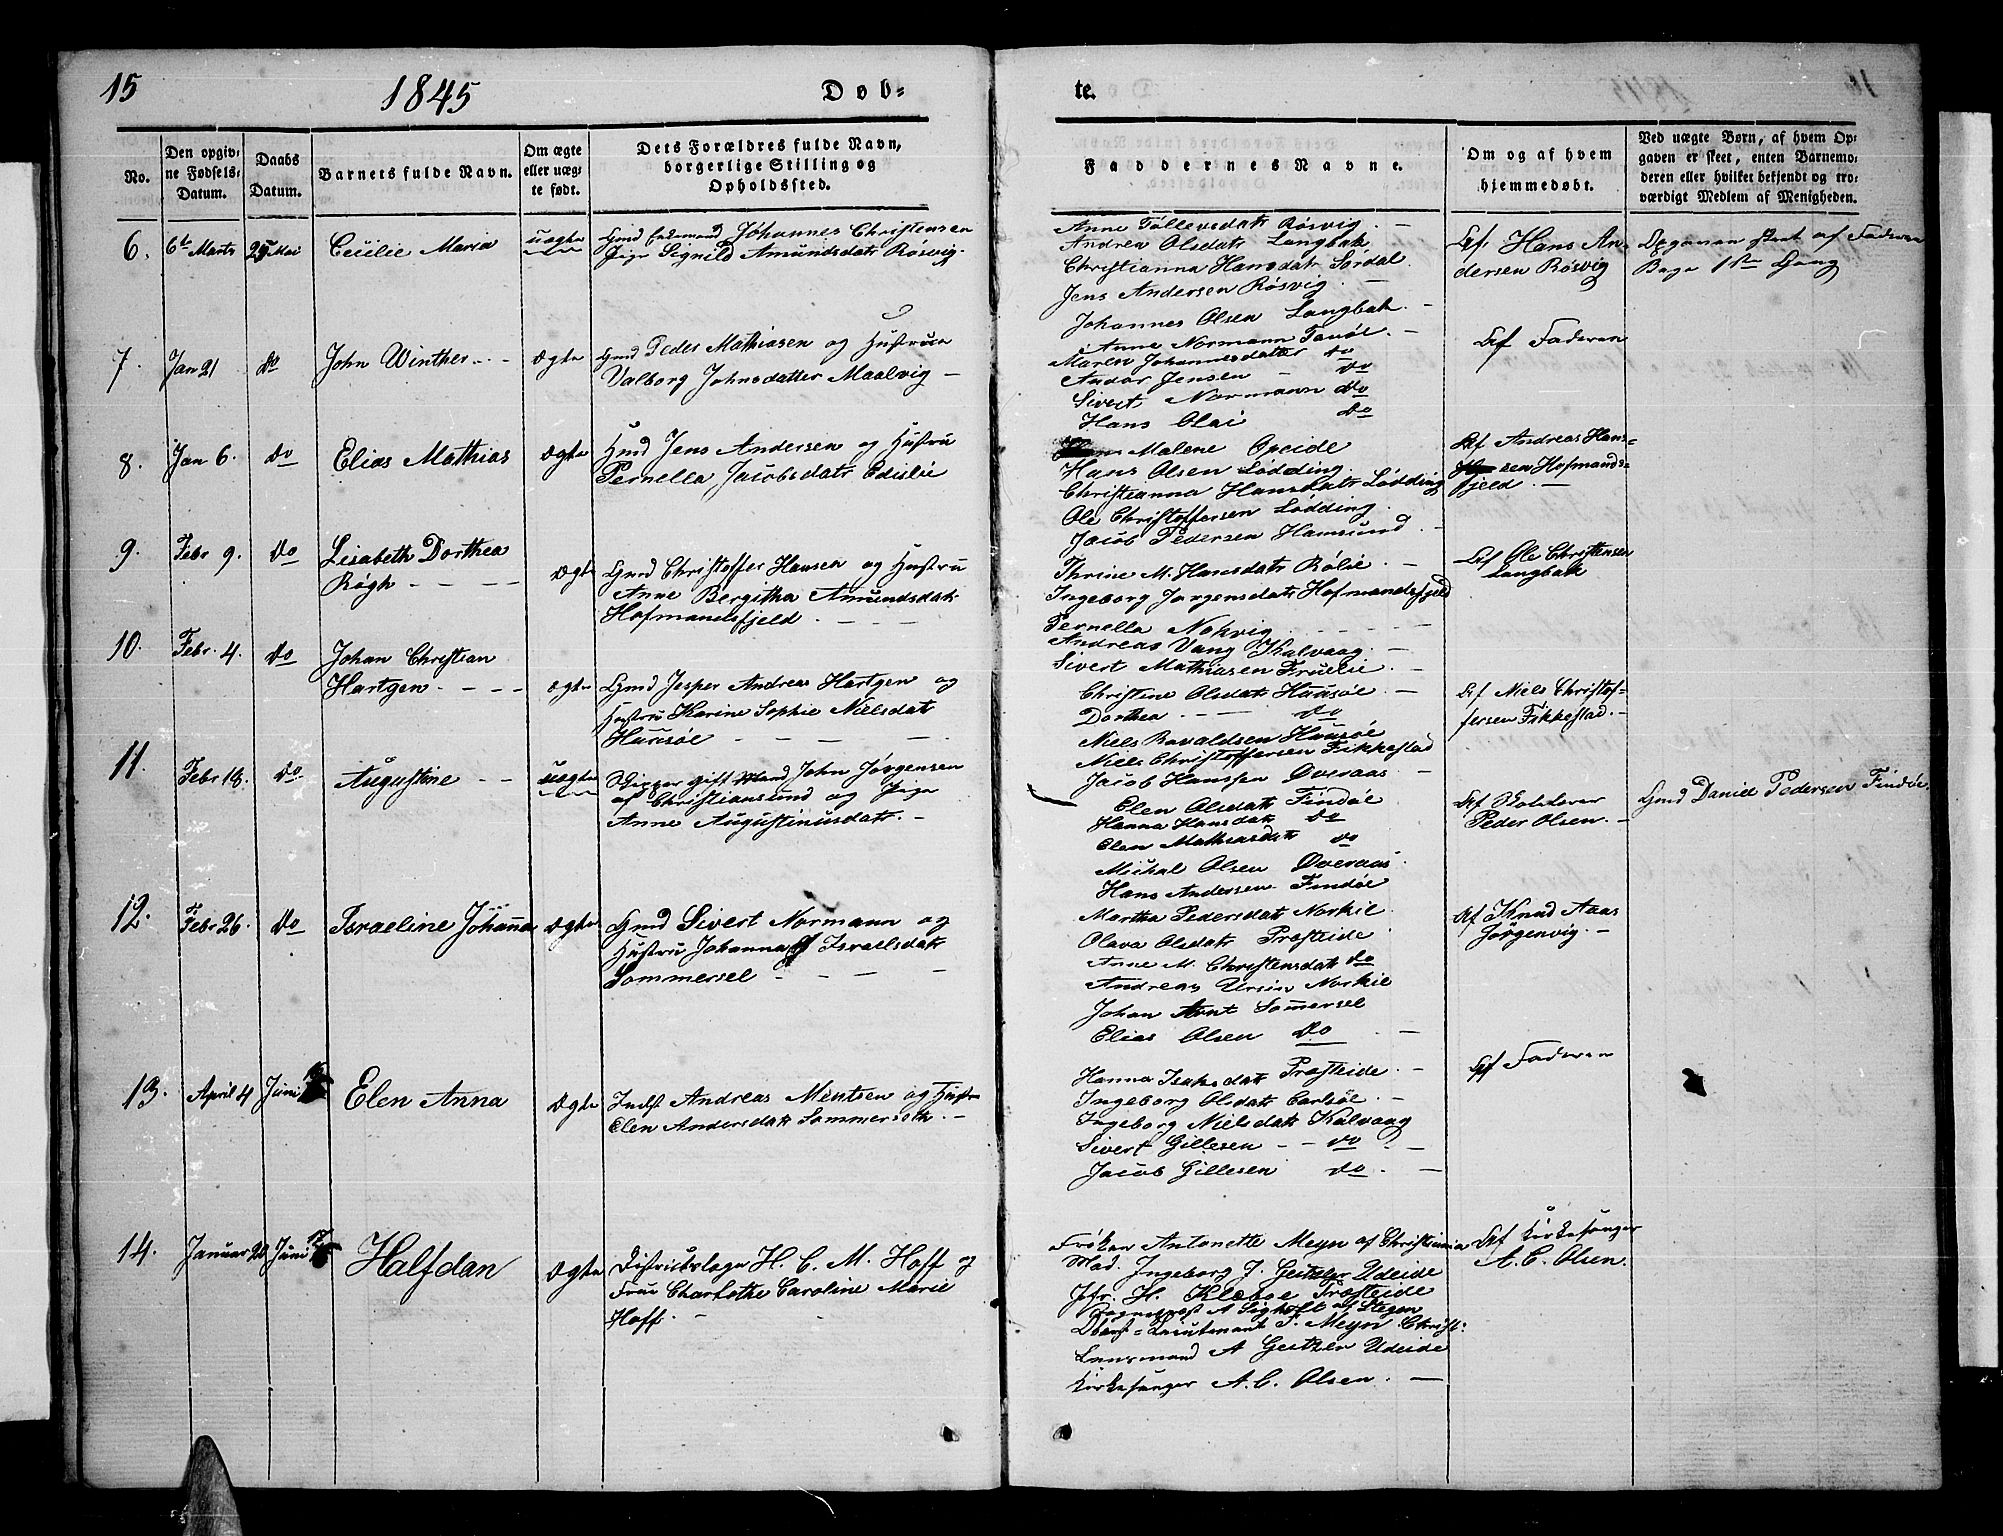 15
1845
Døb-
te.
No.
Den opgiv-
ne Fødsels-
Datum.
Daabs
Datum.
Barnets fulde Navn.
Om ægte
eller uæg-
te født.
Dets Forældres fulde Navn,
borgerlige Stilling og
Opholdssted.
Faddernes Navne.
Om og af hvem
hjemmedøbt.
Ved uægte Børn, af hvem Op-
gaven er skeet, enten Barnemo-
deren eller hvilket bekjendt og tro-
værdigt Medlem af Menigheden.
6.
6te Marts
25 Mai
Cecilie Maria
uægte
Gmd Johannes Christensen
Pige Signild Amundsdatr Røsvig.
Anne Tollevsdatr Røsvig
Andrea Olsdatr Langbak
Christianna Hansdatr Sørdal
Jens Andersen Røsvig
Johannes Olsen Langbak
Af Hans An-
dersen Røsvig
Opgaven skeet af Faderen
Bege 1ste Gang
7.
Jan 21
do
John Winther
ægte
Gmd Peder Mathiasen og Hustrue
Valborg Johnsdatter Maalvig
Anne Normann Tanøe
Maren Johannesdatter do
Andor Jensen do
Sivert Normann do
Hans Olai do
Af Faderen
8.
Jan 6.
do
Elias Mathias
ægte
Hmd Jens Andersen og Hustru
Pernella Jacobsdatr Edislie
Malene Opeide
Hans Olsen Lødding
Christianna Hansdatr Lødding
Ole Christoffersen Lødding
Jacob Pedersen Hamsund
Af Andreas Han-
sen Hofmands-
fjeld
9.
Febr 9.
do
Lisabeth Dorthea
Røgh
ægte
Gmd Christoffer Hansen og Hustru
Anne Bergitha Amundsdatr
Hofmandsfjeld
Thrine M. Hansdatr Rølie
Ingeborg Jørgensdatr Hofmandsfjeld
Pernella Nohvig
Andreas Vang Kalvaag
Sivert Mathiasen Fruelie
Af Ole Christensen
Langbak
10.
Febr. 4.
do
Johan Christian
Hartgen
ægte
Gmd Jesper Andreas Hartgen og
Hustru Karine Sophie Nielsdatr
Huusøe
Christine Olsdatr Huusøe
Dorthea do
Niels Ravaldsen Huusøe
Niels Christoffersen Fikkestad
Jacob Hanssen Overaas
Af Niels Christof-
fersen Fikkestad.
11.
Febr 18.
do
Augustine
uægte
Skipper gift Mand John Jørgensen
af Christiansund og Pige
Anne Augustinusdatr.
Elen Olsdatr Findøe
Hanna Hansdatr do
Elen Mathiasdatr do
Michal Olsen Overaas
Hans Andersen Findøe
Af Skolelærer
Peder Olsen.
Gmd Daniel Pedersen Findøe.
12.
Febr 26.
do
Israeline Johanna
ægte
Gmd Sivert Normann og
Hustru Johanna Israelsdatr
Sommersel
Martha Pedersdatr Norkil
Olava Olsdatr Præsteide
Anne M. Christensdatr do
Andreas Ursin Norkil
Johan Arnt Sommersel
Elias Olsen do
Af Knud Aas
Jørgenvig.
13.
April 4
Juni
Elen Anna
ægte
Indst Andreas Mentsen og Hustru
Elen Andersdatr Sommerseth
Hanna Isaksdatr Præsteide
Ingeborg Olsdatr Carlsøe
Ingeborg Nielsdatr Kalvaag
Sivert Gillesen do
Jacob Gillesen do
Af Faderen
14.
Januar 20
Juni 17
Halfdan
ægte
Districtslæge H. C. M. Hoff og
Frue Charlothe Caroline Marie
Hoff.
Frøken Antonette Meyn af Christiania
Mad. Ingeborg J. Geitzler Udeide
Jfr. H. Klæboe Præsteide
A Sigholt af Stegen
Oberst-Lieutenant F. Meyn Christ:
Lensmand A Geitzler Udeide
Kirkesanger A. C. Olsen.
Af Kirkesanger
A. C. Olsen.